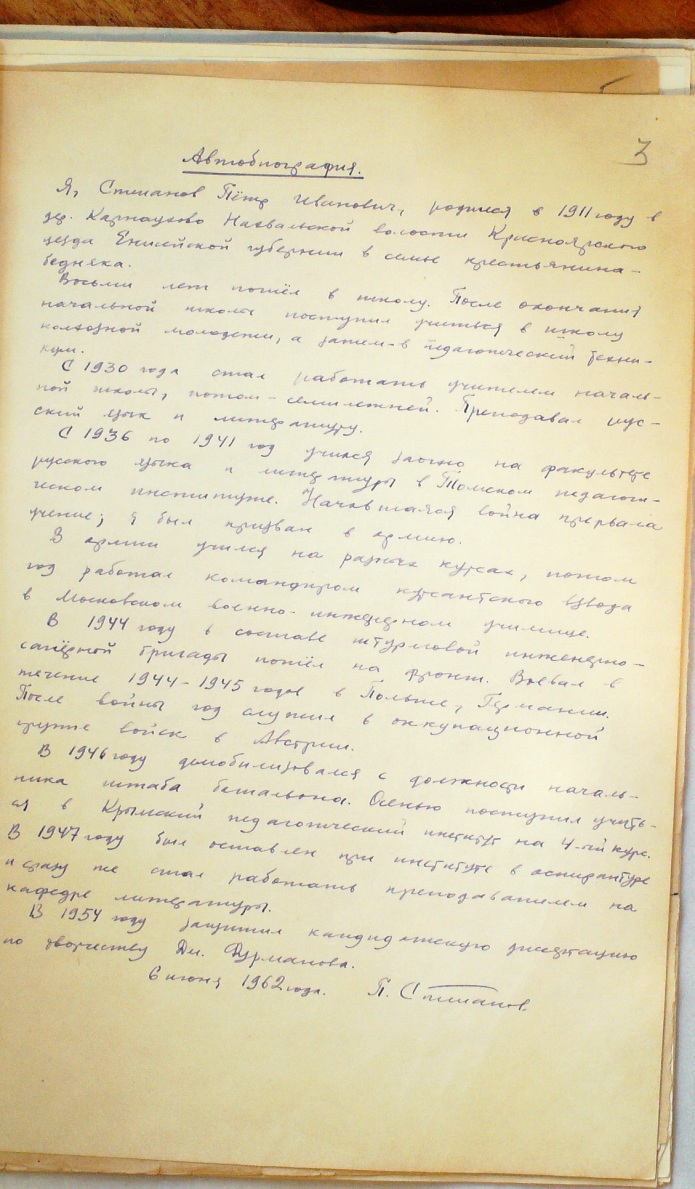 3
Автобиография.
Я, Степанов Пётр Иванович, родился в 1911 году в
дер. Карнаухово Нахвальской волости Красноярского
уезда Енисейской губернии в семье крестьянина-
бедняка.
Восьми лет пошёл в школу. После окончания
начальной школы поступил учиться в школу
колхозной молодежи, а затем – в педагогический техни-
кум.
С 1930 года стал работать учителем началь-
ной школы, потом – семилетней. Преподавал рус-
ский язык и литературу.
С 1936 по 1941 год учился заочно на факультете
русского языка и литературы в Томском педагоги-
ческом институте. Начавшаяся война прервала
учение; я был призван в армию.
В армии учился на разных курсах, потом
год работал командиром курсантского взвода
в Московском военно-инженерном училище.
В 1944 году в составе штурмовой инженерно-
сапёрной бригады пошёл на фронт. Воевал в
течение 1944-1945 годов в Польше, Германии.
После войны год служил в оккупационной
группе войск в Австрии.
В 1946 году демобилизовался с должности началь-
ника штаба батальона. Осенью поступил учить-
ся в Крымский педагогический институт на 4-ый курс.
В 1947 году был оставлен при институте в аспирантуре
и сразу же стал работать преподавателем на
кафедре литературы.
В 1954 году защитил кандидатскую диссертацию
по творчеству Дм. Фурманова.
6 июня 1962 года. П. Степанов.